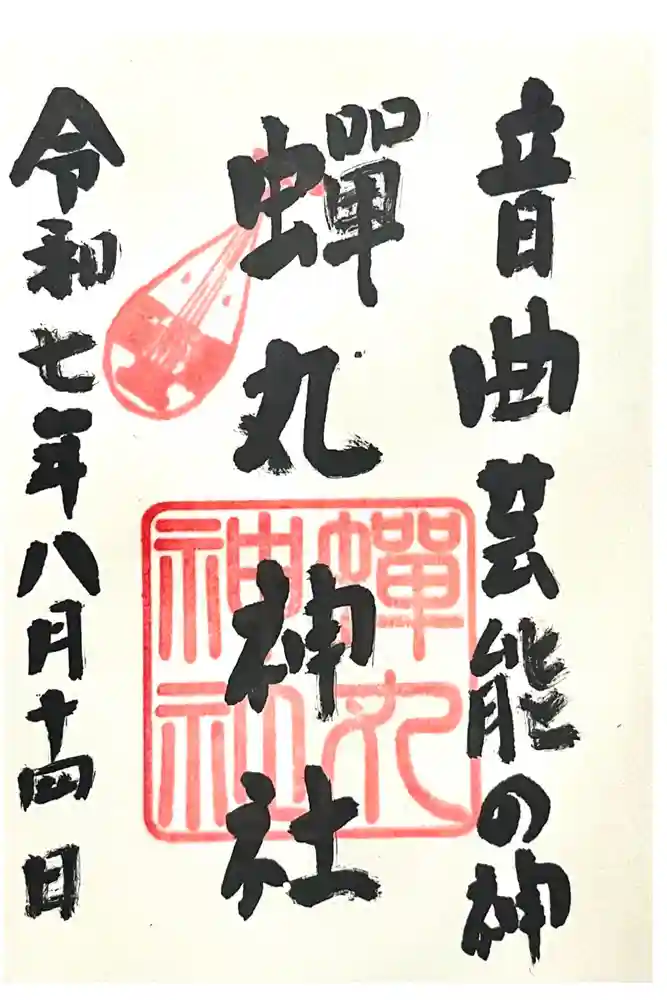 音曲芸能の神
蝉丸神社
蟬丸
神社
令和七年八月十四日